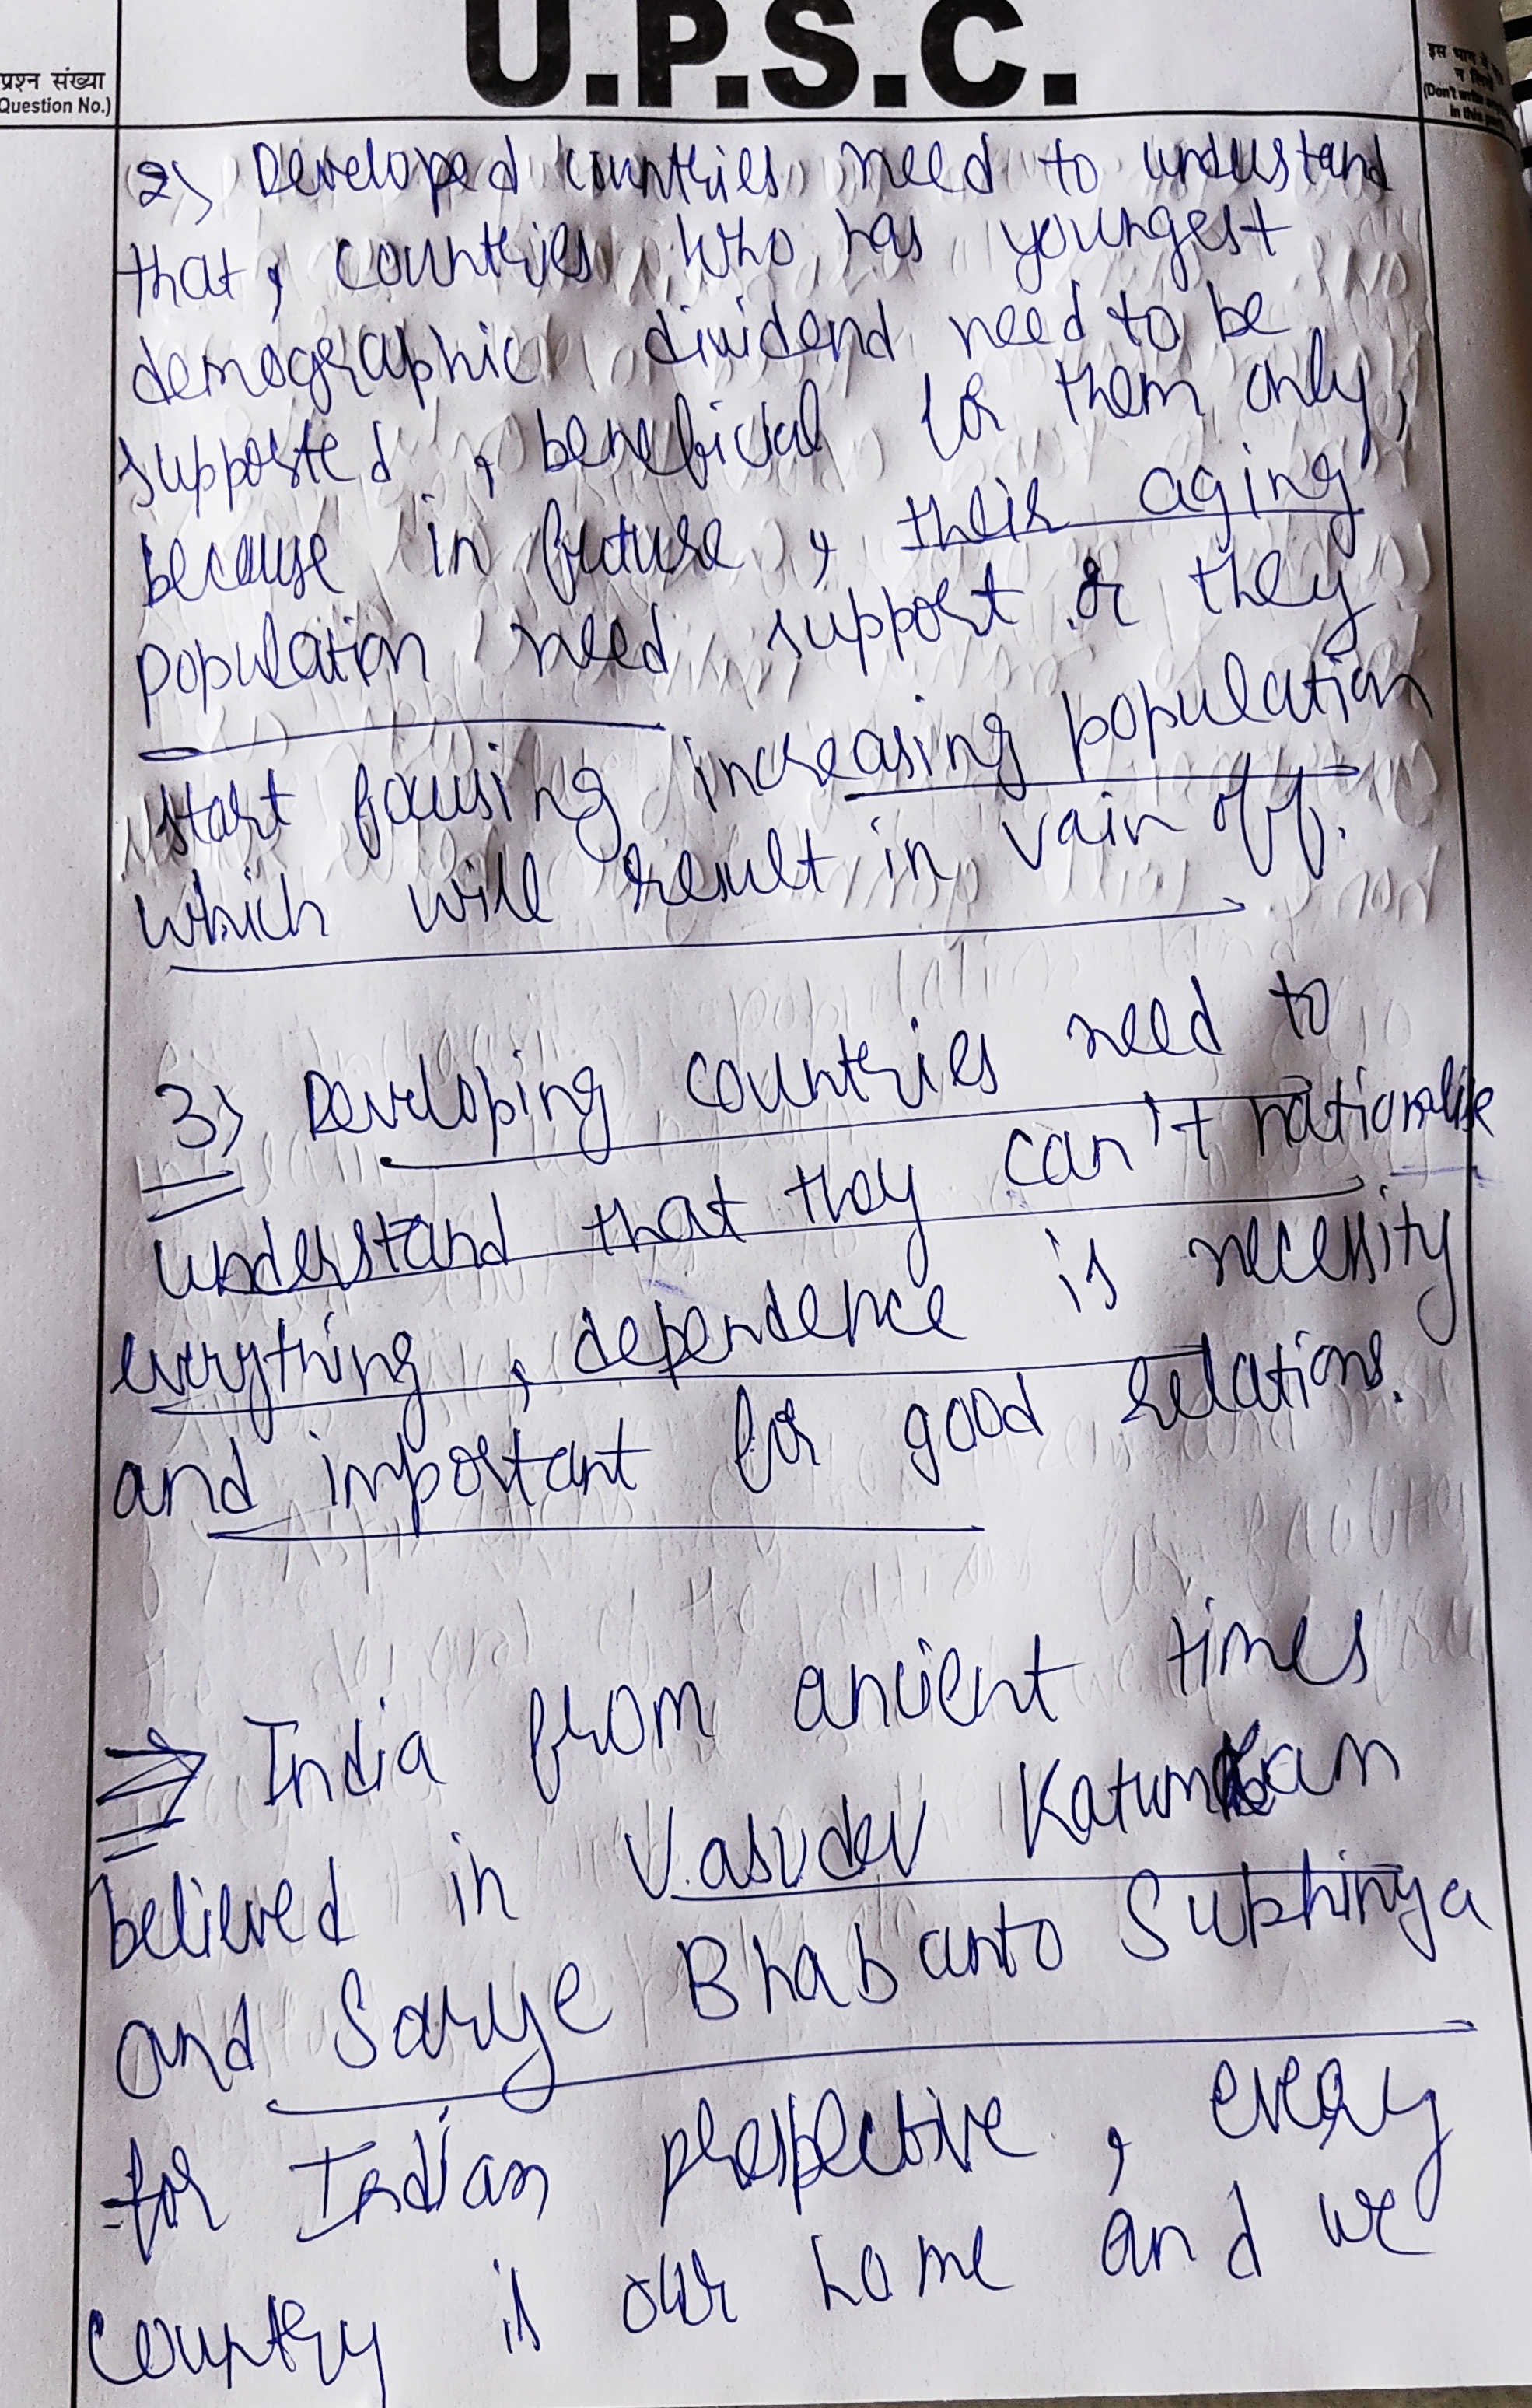 U.P.S.C.
प्रश्न संख्या
(Question No.)
(Don't write
in this
2) Developed countries need to understand
that, countries who has youngest
demographic dividend need to be
supported, beneficial for them only,
because in future, their aging
population need support or they
start focusing increasing population
which will result in vain off.
3) Developing countries need to
understand that they can't nationalise
everything, dependence is necessity
and important for good relations.
⇒ India from ancient times
believed in Vasudev Katumbkam
and Sarve Bhabanto Sukhinya
for Indian perspective, every
country is our home and we